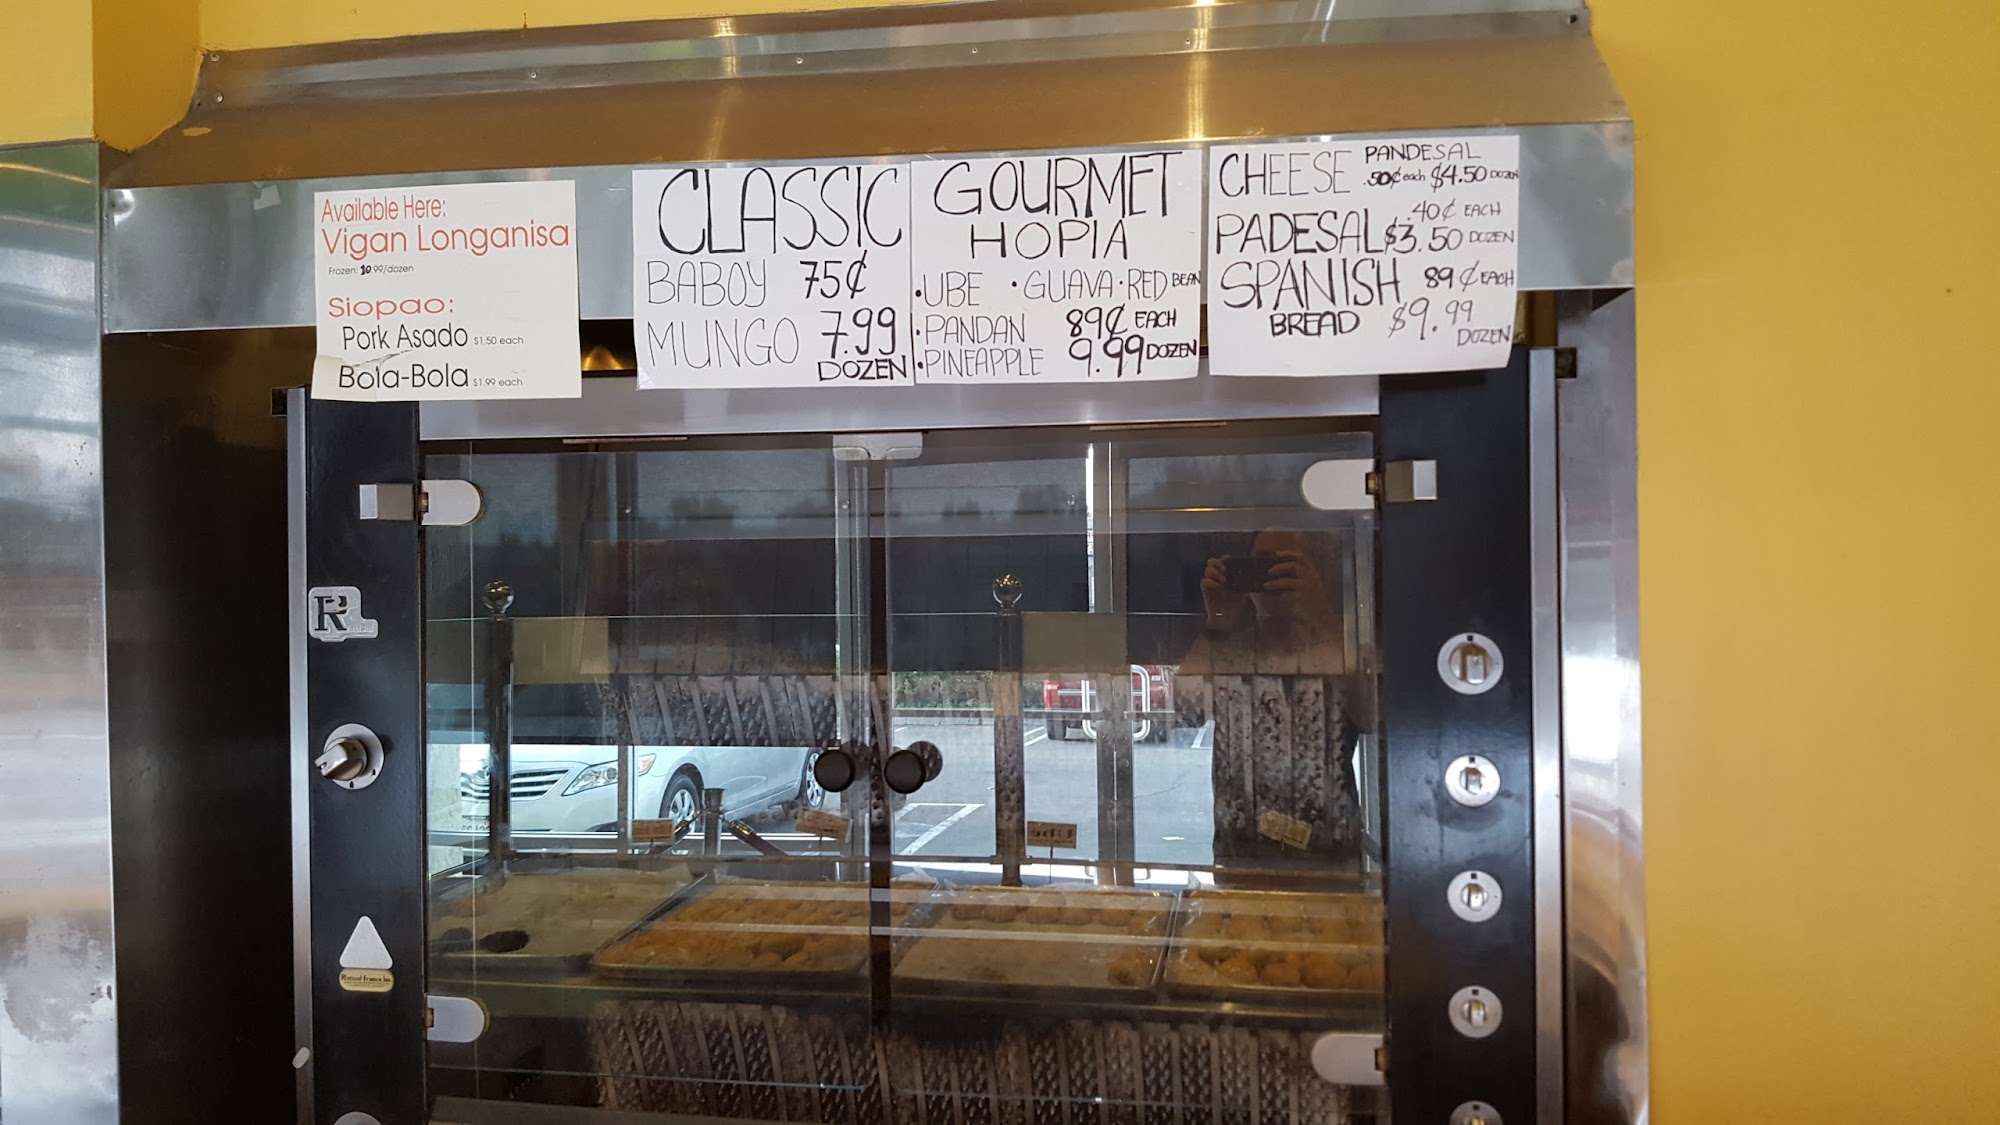 Available Here:
Vigan Longanisa
Frozen: 10.99/dozen
Siopao:
Pork Asado $1.50 each
Bola-Bola $1.99 each
CLASSIC
BABOY 75¢
MUNGO 7.99
DOZEN
GOURMET
HOPIA
•UBE •GUAVA•RED BEAN
•PANDAN 89¢ EACH
•PINEAPPLE 9.99 DOZEN
CHEESE PANDESAL
.50¢ each $4.50 DOZEN
.40¢ EACH
PADESAL $3.50 DOZEN
SPANISH 89¢ EACH
BREAD $9.99
DOZEN
R
Ube
Rotisol France Inc.